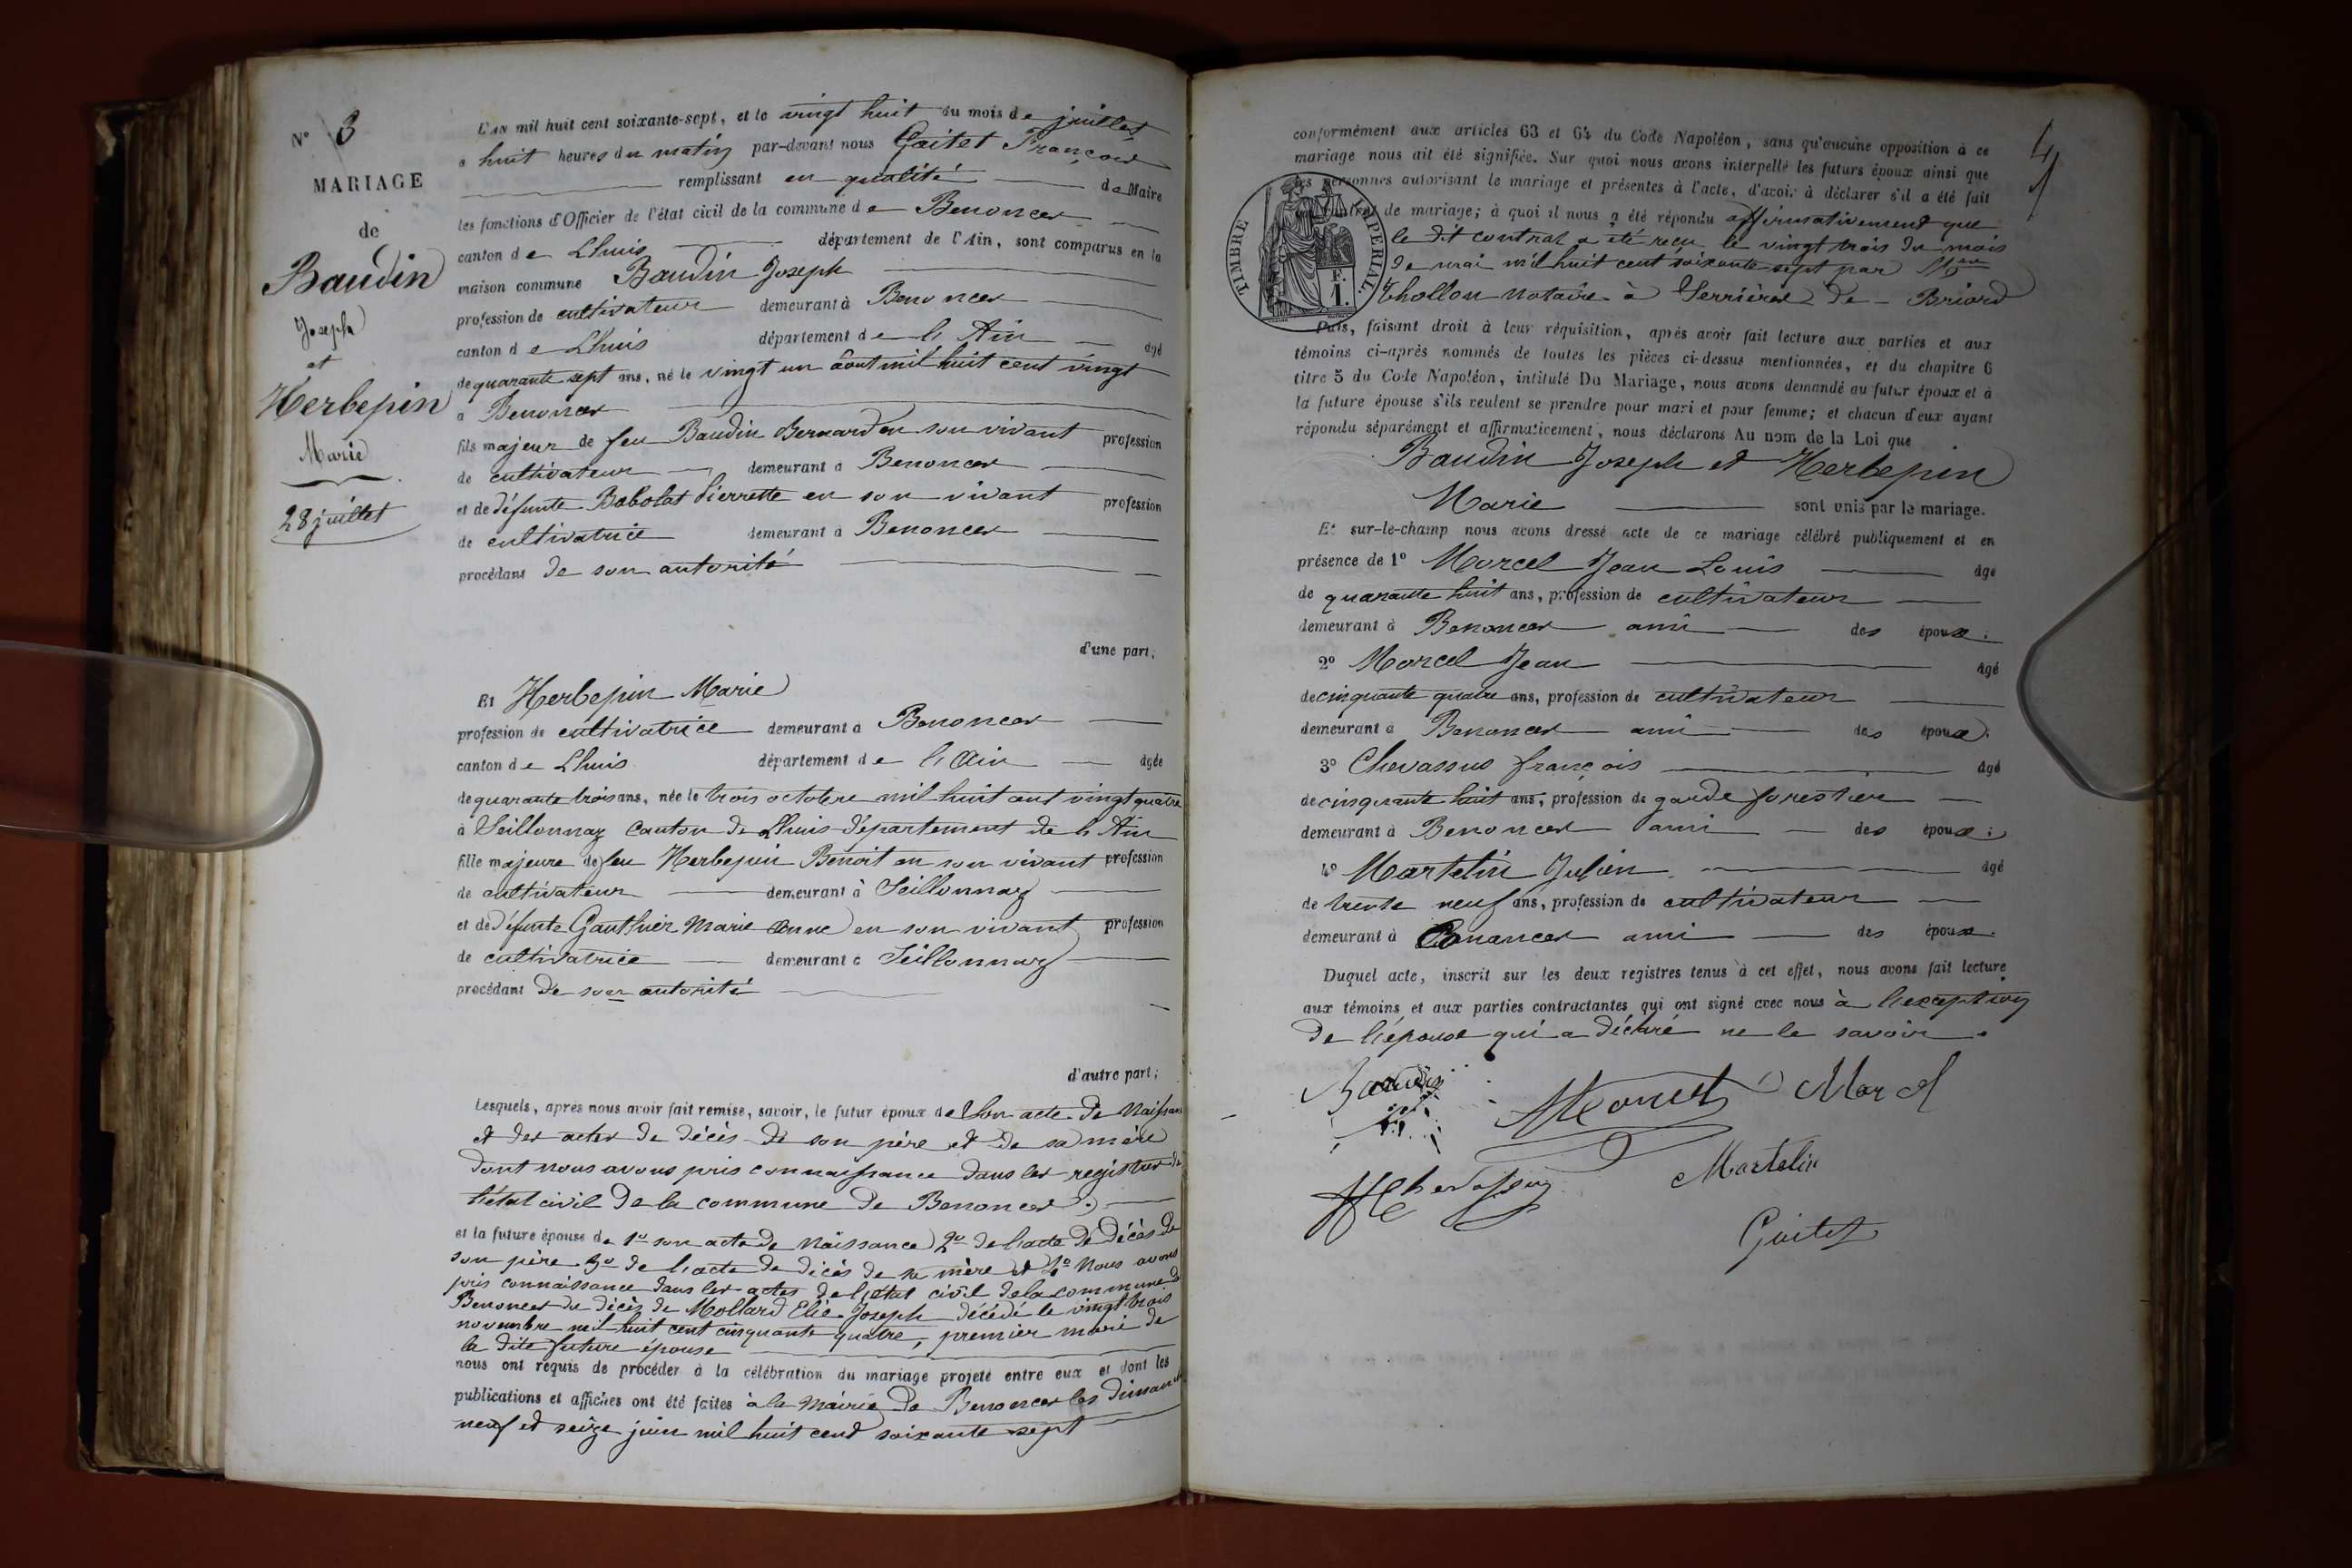 N° 3
MARIAGE
de
Baudin
Joseph
et
Herbepin
Marie
28 juillet
L'AN mil huit cent soixante-sept, et le vingt huit du mois de juillet
a huit heures du matin par-devant nous Gaitet François
remplissant en qualité de Maire
les fonctions d'Officier de l'état civil de la commune de Benonces
canton de Lhuis département de l'Ain, sont comparus en la
maison commune Baudin Joseph
profession de cultivateur demeurant à Benonces
canton de Lhuis département de l'Ain agé
de quarante sept ans, né le vingt un août mil huit cent vingt
a Benonces
fils majeur de feu Baudin Bernard en son vivant profession
de cultivateur demeurant a Benonces
et de défunte Bobolat Pierrette en son vivant profession
de cultivatrice demeurant a Benonces
procédant de son autorité
d'une part;
Et Herbepin Marie
profession de cultivatrice demeurant a Benonces
canton de Lhuis département de l'Ain agée
de quarante trois ans, née le trois octobre mil huit cent vingt quatre
à Seillonnaz Canton de Lhuis département de l'Ain
fille majeure de feu Herbepin Benoit en son vivant profession
de cultivateur demeurant à Seillonnaz
et de défunte Gauthier Marie Anne en son vivant profession
de cultivatrice demeurant a Seillonnaz
procédant de son autorité
d'autre part;
Lesquels, après nous avoir fait remise, savoir, le futur époux de son acte de Naissance
et des actes de décès de son père et de sa mère
dont nous avons pris connaissance dans les registres de
l'état civil de la commune de Benonces
et la future épouse de 1° son acte de Naissance 2° de l'acte de décès de
son père 3° de l'acte de décès de sa mère et 4° Nous avons
pris connaissance dans les actes de l'état civil de la commune de
Benonces du décès de Mollard Elie Joseph décédé le vingt trois
novembre mil huit cent cinquante quatre, premier mari de
la dite future épouse
nous ont requis de procéder à la célébration du mariage projeté entre eux et dont les
publications et affiches ont été faites à la Mairie de Benonces les dimanches
neuf et seize juin mil huit cent soixante sept
4
conformément aux articles 63 et 64 du Code Napoléon, sans qu'aucune opposition à ce
mariage nous ait été signifiée. Sur quoi nous avons interpellé les futurs époux ainsi que
les personnes autorisant le mariage et présentes à l'acte, d'avoir à déclarer s'il a été fait
contrat de mariage; à quoi il nous a été répondu affirmativement que
le dit contrat a été reçu le vingt trois du mois
de mai mil huit cent soixante sept par Me
Thollon Notaire à Serrières de Briord
TIMBRE IMPERIAL.
F.
1.
Puis, faisant droit à leur réquisition, après avoir fait lecture aux parties et aux
témoins ci-après nommés de toutes les pièces ci-dessus mentionnées, et du chapitre 6
titre 5 du Code Napoléon, intitulé Du Mariage, nous avons demandé au futur époux et à
la future épouse s'ils veulent se prendre pour mari et pour femme; et chacun d'eux ayant
répondu séparément et affirmativement, nous déclarons Au nom de la Loi que
Baudin Joseph et Herbepin
Marie sont unis par le mariage.
Et sur-le-champ nous avons dressé acte de ce mariage célébré publiquement et en
présence de 1° Morcel Jean Louis agé
de quarante huit ans, profession de cultivateur
demeurant à Benonces ami des époux;
2° Morcel Jean agé
de cinquante quatre ans, profession de cultivateur
demeurant à Benonces ami des époux;
3° Chevassus françois agé
de cinquante huit ans, profession de garde forestier
demeurant à Benonces ami des époux;
4° Martelin Julien agé
de trente neuf ans, profession de cultivateur
demeurant à Bonances ami des époux.
Duquel acte, inscrit sur les deux registres tenus à cet effet, nous avons fait lecture
aux témoins et aux parties contractantes qui ont signé avec nous à l'exception
de l'épouse qui a déclaré ne le savoir.
Baudin Morcel
Martelin
Chevassus
Gaitet